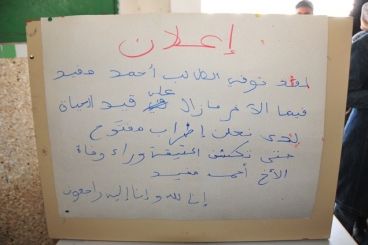 إعلان
لقد توفي الطالب أحمد مفيد
فيما الآخر مازال على قيد الحياة
لذى نعلن إضراب مفتوح
حتى تكشف الحقيقة وراء وفاة
الأخ أحمد مفيد
إنا لله وإنا إليه راجعون